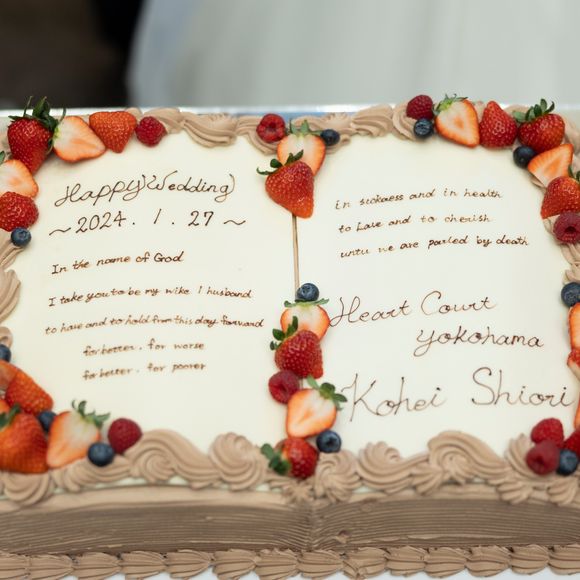 Happy Wedding
~ 2024. 1. 27 ~
In the name of God
I take you to be my wike I husband
to have and to hold from this day forward
for better. for worse
for better. for poorer
in sickness and in health
to Love and to cherish
until we are parted by death
Heart Court
Yokohama
Kohei Shiori